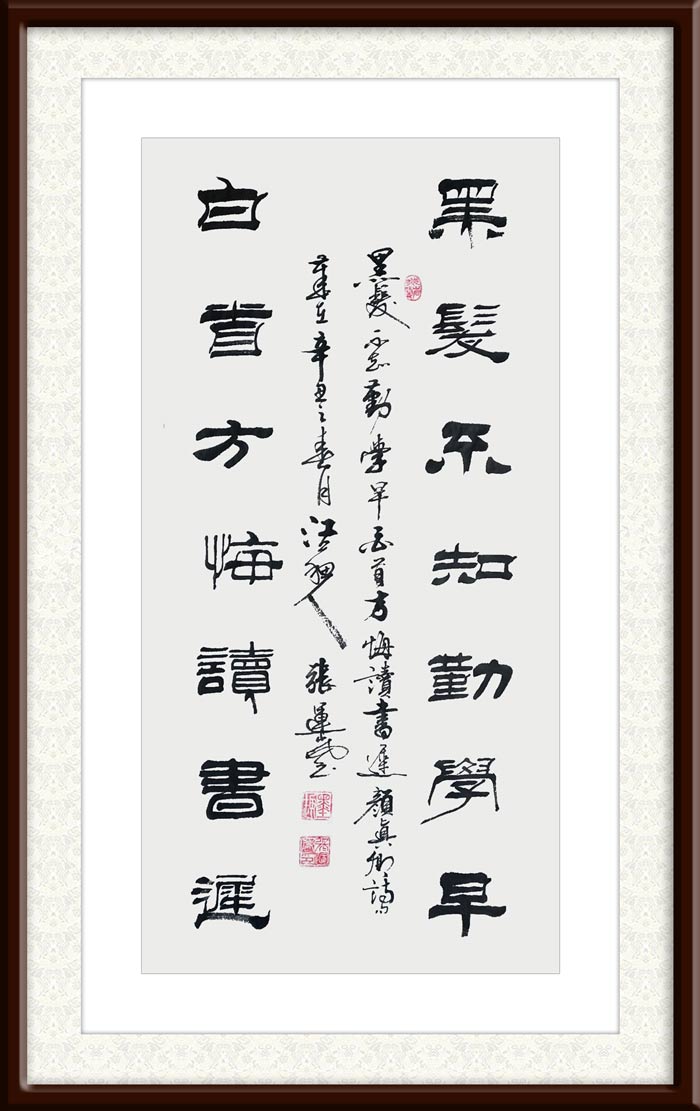 黑髮不知勤學早
白首方悔讀書遲
黑髮不知勤學早白首方悔讀書遲顏真卿詩
歲在辛丑之春月江人張運